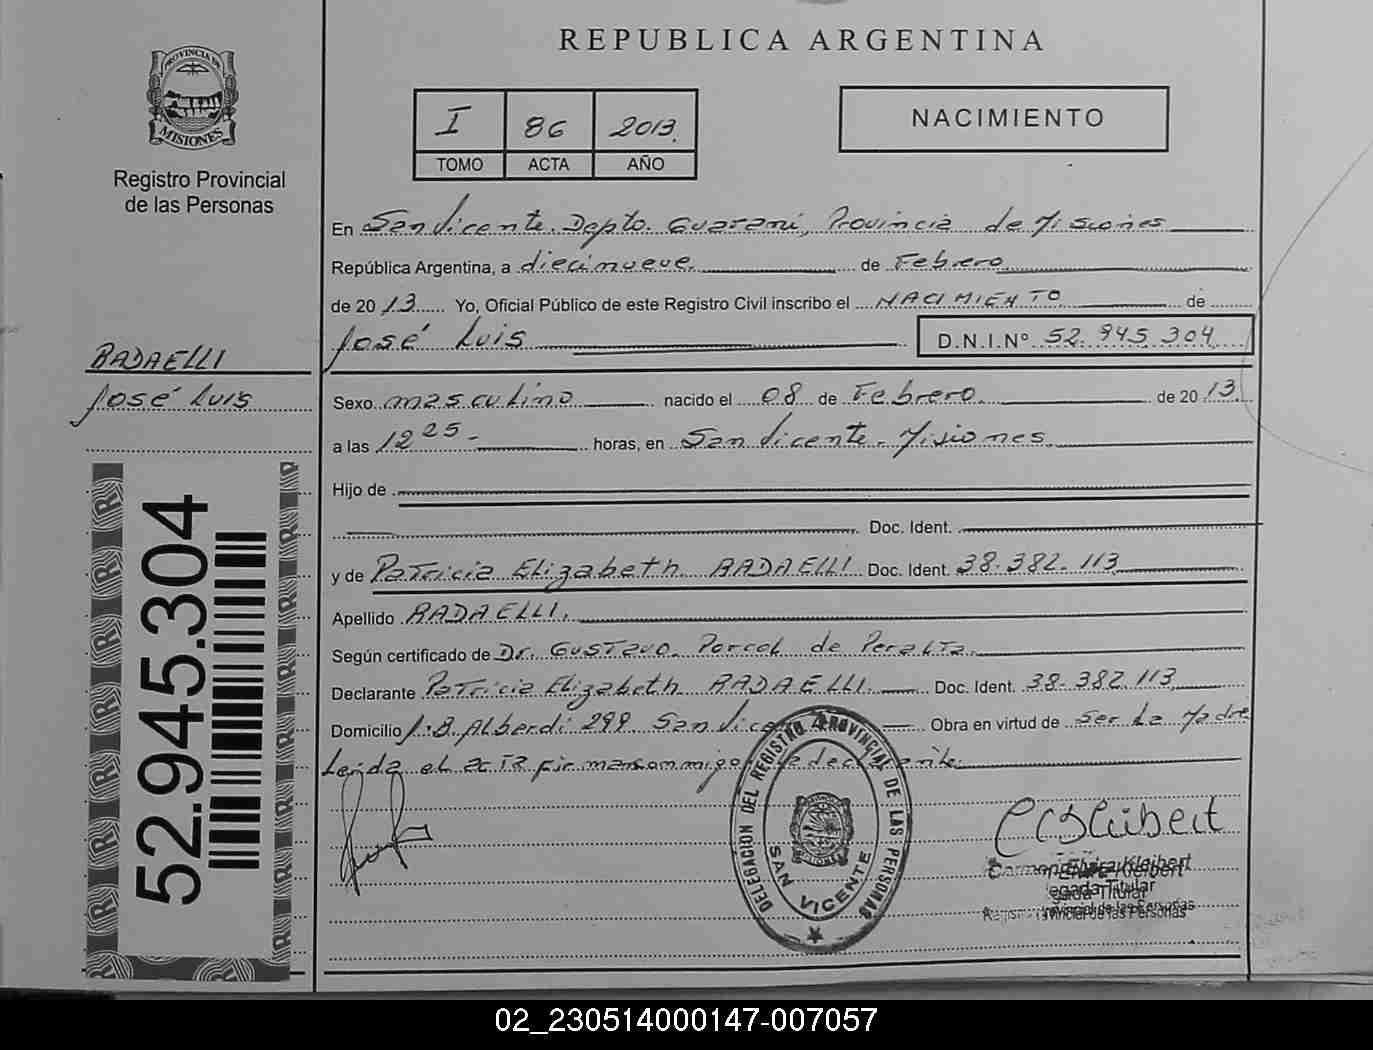 REPUBLICA ARGENTINA
PROVINCIA DE
MISIONES
Registro Provincial
de las Personas
I 86 2013
TOMO ACTA AÑO
NACIMIENTO
En San Vicente. Depto. Guaraní, Provincia de Misiones
República Argentina, a diecinueve de Febrero
de 2013 Yo, Oficial Público de este Registro Civil inscribo el NACIMIENTO de
José Luis D.N.I.Nº 52.945.304
RADAELLI
José Luis
Sexo masculino nacido el 08 de Febrero de 2013
a las 12 25 horas, en San Vicente - Misiones
Hijo de
Doc. Ident.
y de Patricia Elizabeth RADAELLI Doc. Ident. 38.382.113
Apellido RADAELLI
Según certificado de Dr. Gustavo Porcel de Peralta
Declarante Patricia Elizabeth RADAELLI Doc. Ident. 38.382.113
Domicilio J.B. Alberdi 299 San Obra en virtud de Ser La Madre
Leida el acta
52.945.304
DELEGACION DEL REGISTRO PROVINCIAL DE LAS PERSONAS
SAN VICENTE
Elvira Kleibert
Titular
de las Personas
02_230514000147-007057